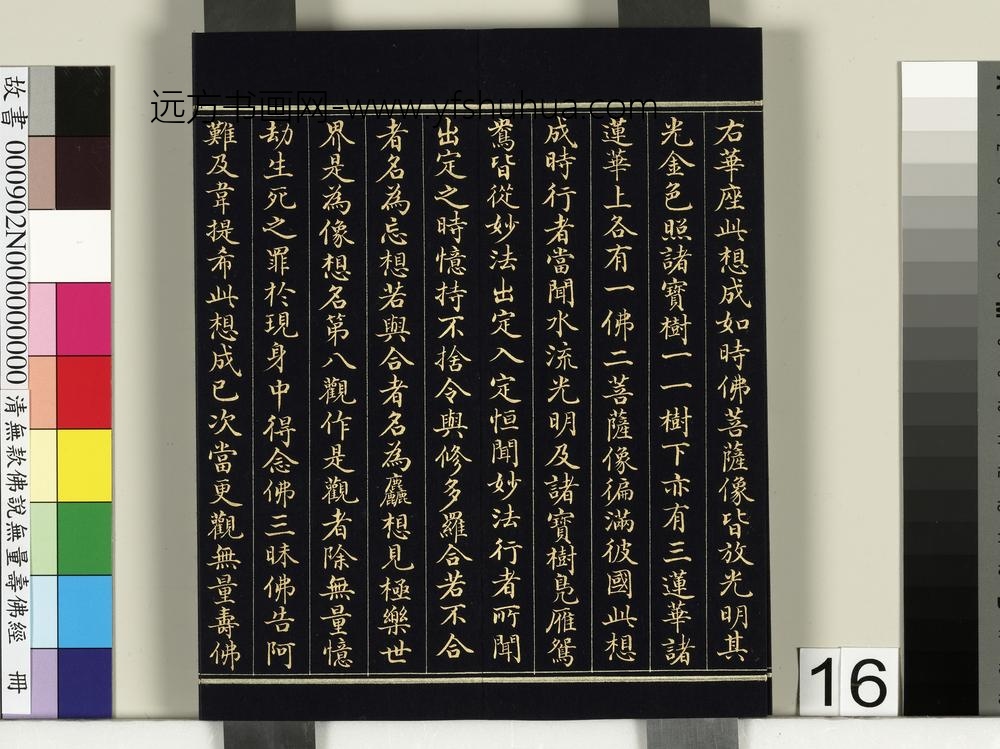 右華座此想成如時佛菩薩像皆放光明其
光金色照諸寶樹一一樹下亦有三蓮華諸
蓮華上各有一佛二菩薩像徧滿彼國此想
成時行者當聞水流光明及諸寶樹鳧雁鴛
鴦皆從妙法出定入定恒聞妙法行者所聞
出定之時憶持不捨令與修多羅合若不合
者名為忘想若與合者名為麤想見極樂世
界是為像想名第八觀作是觀者除無量憶
劫生死之罪於現身中得念佛三昧佛告阿
難及韋提希此想成已次當更觀無量壽佛
远方书画网-www.yfshuhua.com
故書 000902N000000000 清無款佛說無量壽佛經 冊
16